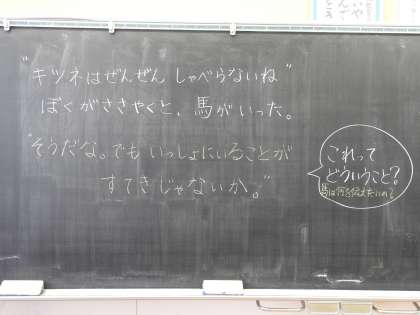 "キツネはぜんぜん しゃべらないね"
ぼくがささやくと、馬がいった。
"そうだな。でも いっしょにいることが
すてきじゃないか。"
これって
どういうこと?
馬は何を伝えたいの?